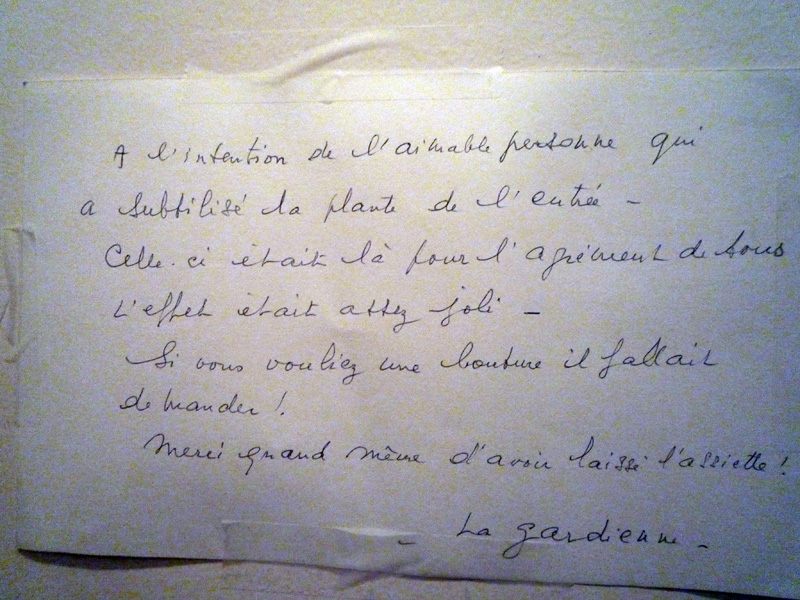 A l'intention de l'aimable personne qui
a subtilisé la plante de l'entrée -
Celle-ci était là pour l'agrément de tous
L'effet était assez joli -
Si vous vouliez une bouture il fallait
demander !
Merci quand même d'avoir laissé l'assiette !
- La gardienne -